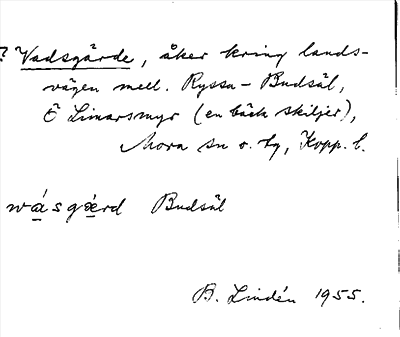 ? Vadsgärde, åker kring lands-
vägen mell. Ryssa - Budsäl,
Ö Limarsmyr (en bäck skiljer),
Mora sn o. tg, Kopp. l.
wásgærd Budsäl
B. Lindén 1955.